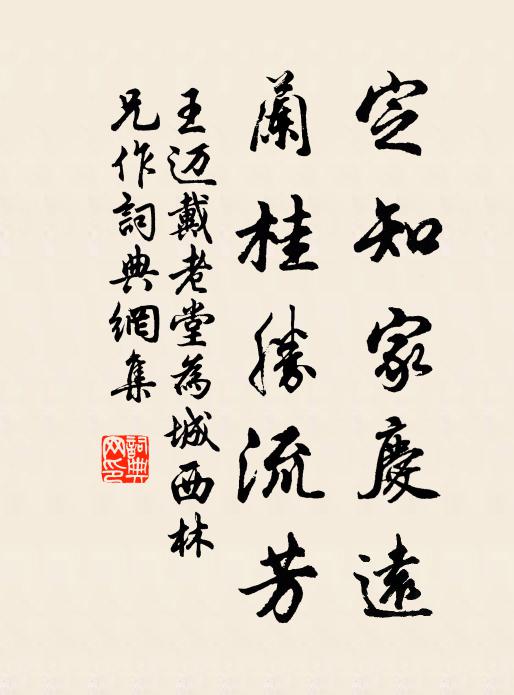 定知家慶遠
蘭桂勝流芳
王迈戴老堂為城西林
兄作詞典網集
詞典
网印